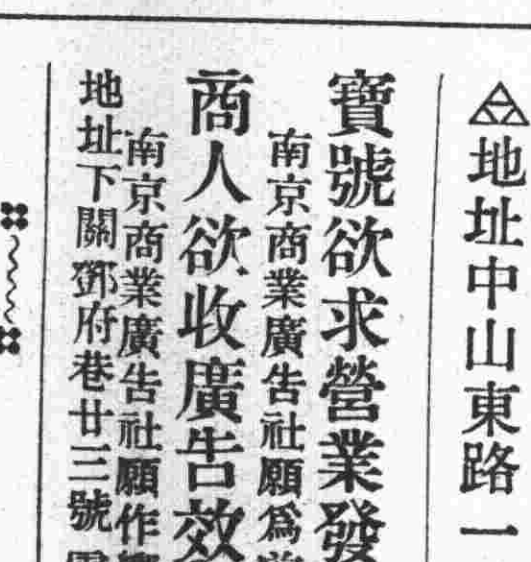 地址中山東路一
寶號欲求營業發
南京商業廣告社願爲
商人欲收廣告效
南京商業廣告社願作
地址下關鄧府巷廿三號